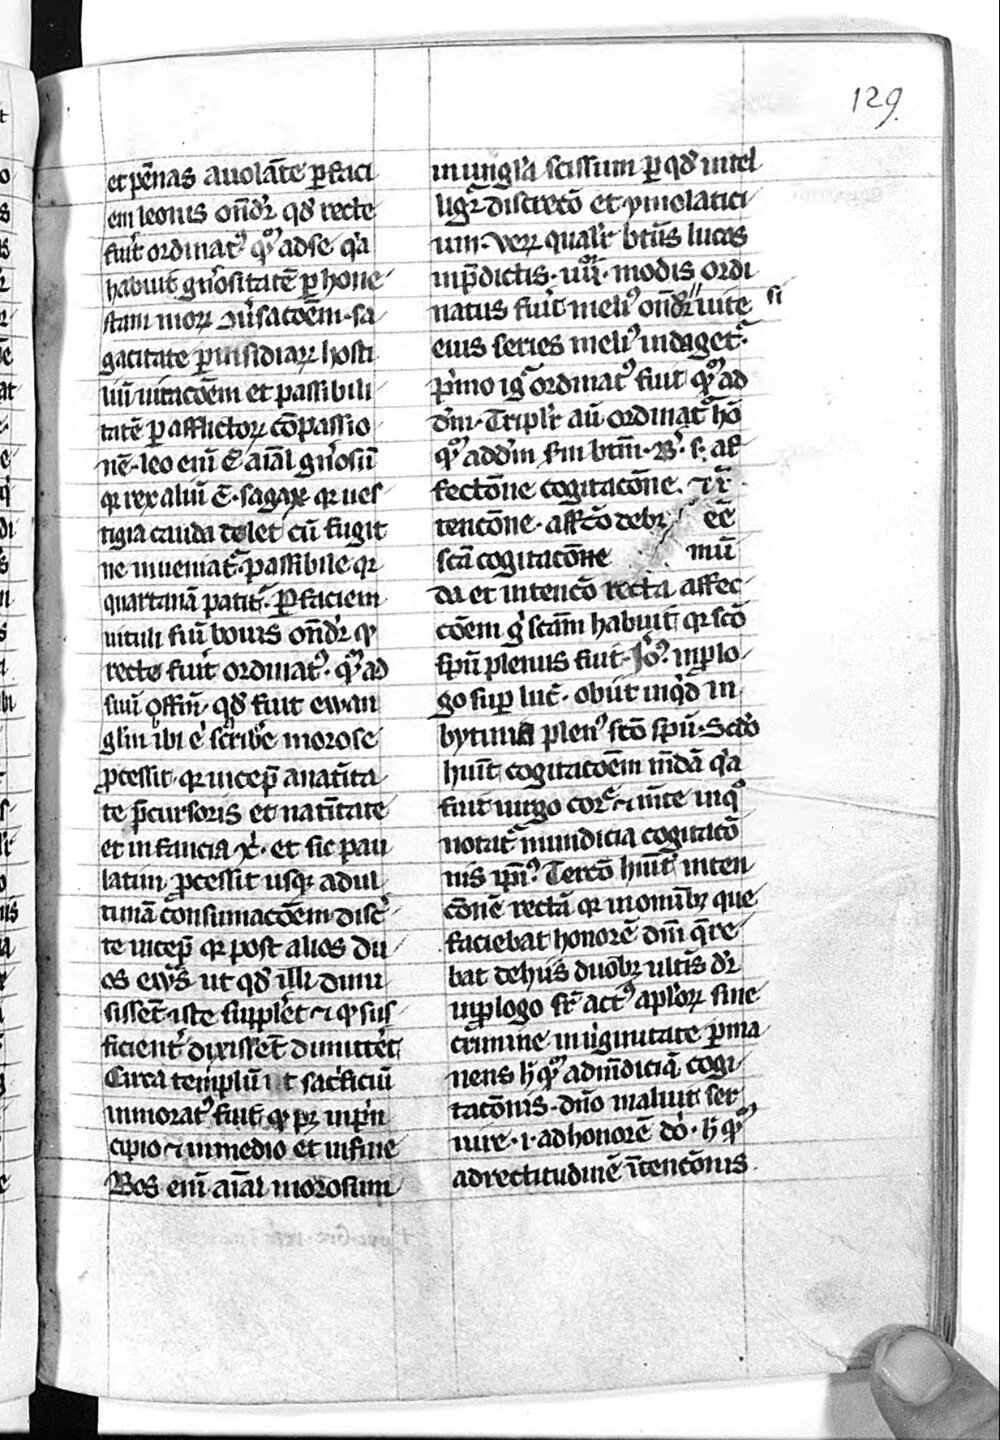 129.
et pēnas auolātē ꝑ faci
em leonis on̄dr̄ qđ recte
fuit ordinatꝰ qͦ adse q̇a
habuit gn̄ositatē ꝑ hone
stam moꝝ ꝯūsacōem · sa
gacitate ꝑ insidiaꝝ hosti
liū uitacōem et passibili
tatē ꝑ afflictoꝝ cōpassio
nē · leo eni ē aīal gn̄osū
qr rex aliū ē · sagax qr ues
tigia cauda delet cū fugit
ne inueniatᷓ · passibile qr
quartanā patitᷓ · ꝑ faciem
uituli siū bouis on̄dr̄ qͥ
recte fuit ordinatꝰ · qͦ ad
suū offm̄ · qđ fuit ewan
gliū ibi ē sc̄ribe morose
ꝓcessit · qr incep̄ a natiuita
te p̄cursoris et natiuitate
et infancia xͥ · et sic pau
latim ꝓcessit usqꝫ ad ul
timā consumacōem · disc̄
te incep̄ qr post alios du
os ew̄s ut qđ illi dimi
sissēt iste supplet ⁊ qͥ suf
ficientᷓ dixissēt dimittēt
Circa templū ut sac̄ficiū
inmoratꝰ fuit qͥ pꝫ in p̄n
cipio ⁊ in medio et in fine
Bos eni aīal morosum
in ungl̄a scissum ꝑ qđ intel
ligr̄ discrecō et ymolatici
um · Veꝝ qualr̄ btūs lucas
in p̄dictis · iiijᵒʳ · modis ordi
natus fuit meliꝰ on̄dr̄ ″ uite si
eius series meliꝰ indagetᷓ ·
p̄mo igᷓ ordinatꝰ fuit qͦ ad
dm̄ · Triplr̄ aū ordinatᷓ hō
qͦ ad dm̄ sm btm̄ · B · s · af
fectōne cogitacōne ·
tencōne · affcō debꝫ eē
scā cogitacōne mū
da et intencō recta affec
cōem g̊ scām habuit qr scō
spū plenus fuit · Joꝰ in plo
go sup luc̄ · obiit inq̇d in
bytinia plenꝰ scō spū · Scd̄o
huit cogitacōem mūdā q̇a
fuit uirgo corᵉ ⁊ mēte in qͦ
notatᷓ mundicia cogitacō
nis ipīꝰ Tercō huit inten
cōnē rectā qr in omībꝫ que
faciebat honorē dm̄ q̄re
bat de hiis duobꝫ ultis dr̄
in plogo sr̄ actꝰ aploꝝ sine
crimine in uiginitate ꝑma
nens h̄ qͦ ad mūdiciā cogi
tacōnis · dn̄o maluit ser
uire · i · ad honorē dō · h̄ qͦ
ad rectitudinē ītencōnis